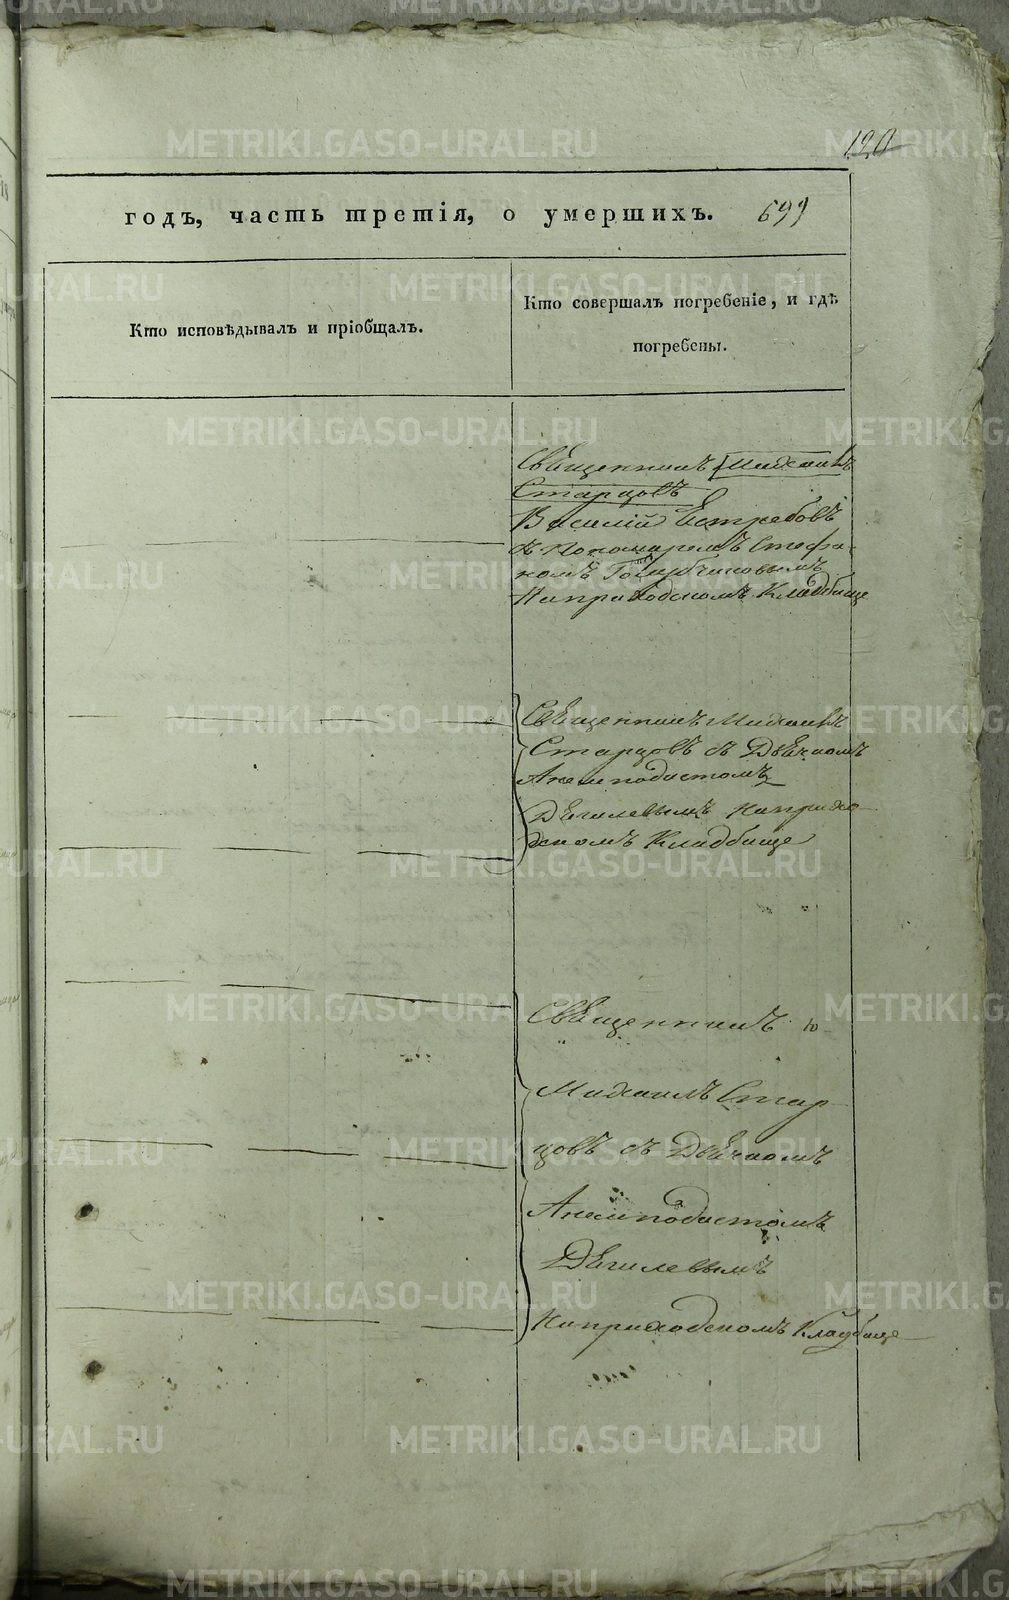 120
годъ, часть третія, о умершихъ. 699
Кто исповѣдывалъ и пріобщалъ.
Кто совершалъ погребеніе, и гдѣ
погребены.
Священникъ Михаилъ
Старцовъ
Василій Естребовъ
съ Пономаремъ Стефа-
номъ
На приходскомъ Кладбище
Священникъ Михаилъ
Старцовъ съ Дьячкомъ
Анемподистомъ
Дѣгилевымъ На прихо-
дскомъ Кладбище
Священникъ
Михаилъ Стар
цовъ съ Дьячкомъ
Анемподистомъ
Дѣгилевымъ
На приходскомъ Кладбище
METRIKI.GASO-URAL.RU